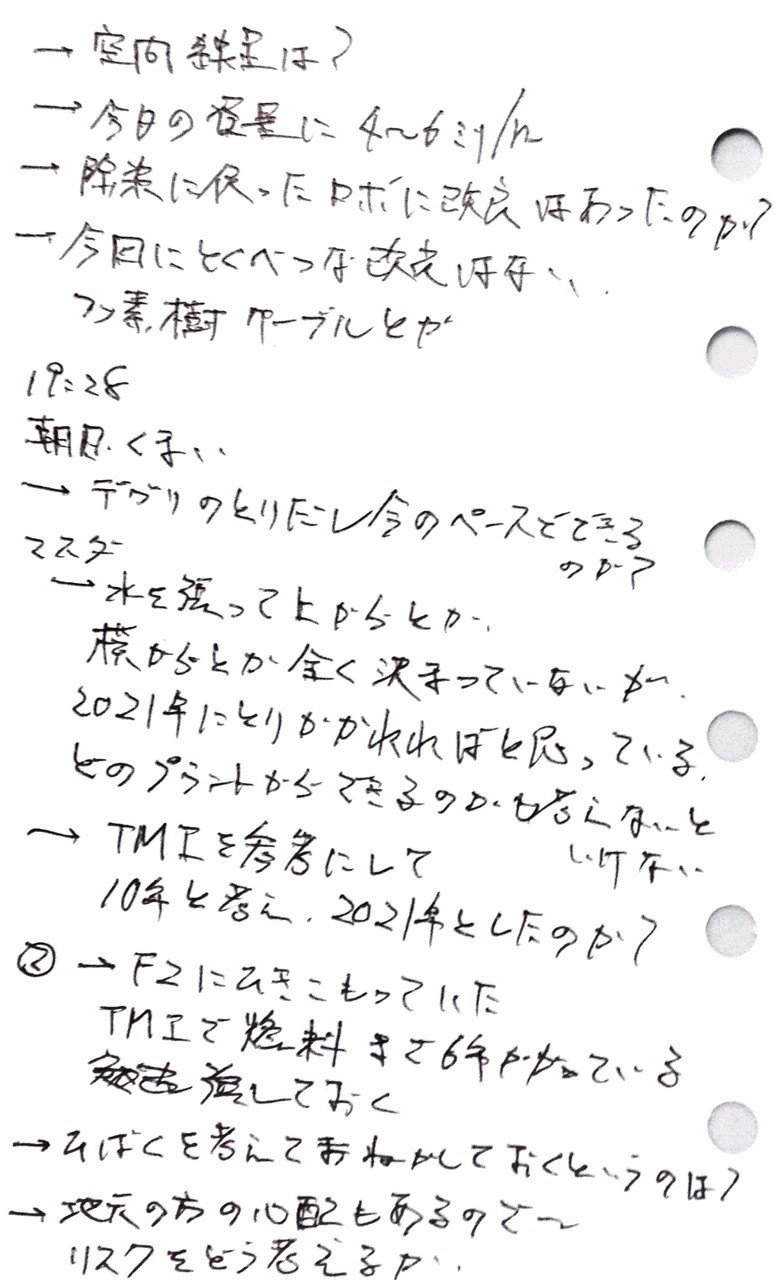 → 空間線量は?
→ 今日の容量に 4〜6ミリ/h
→ 除染に使ったロボに改良はあったのか?
→ 今回にとくべつな改良はない、
フッ素樹 ケーブルとか
19:28
朝日.くまい
→ デブリのとりだし今のペースでできる
のか?
マスダ
→ 水を張って上からとか、
横からとか全く決まっていないが、
2021年にとりかかれればと思っている。
どのプラントからできるのかも考えないと
いけない
→ TMIを参考にして
10年と考え、2021年としたのか?
② → F2にひきこもっていた
TMIで燃料まで6年かかっている
勉強しておく
→ ひばくを考えておねかしておくというのは?
→ 地元の方の心配もあるので〜
リスクをどう考えるか、、